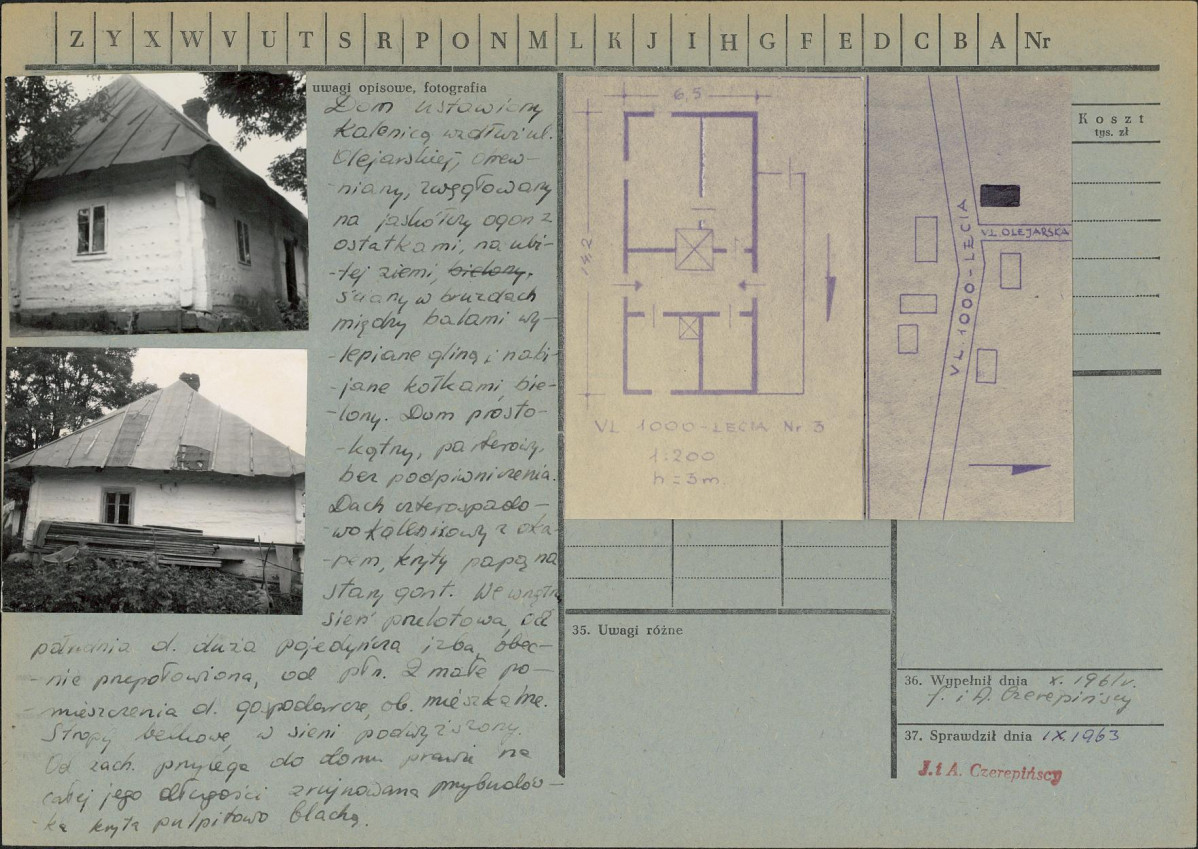 Z Y X W V U T S R P O N M L K J I H G F E D C B A Nr
uwagi opisowe, fotografia
Dom ustawiony
kalenicą wzdłuż ul.
Olejarskiej, drew-
-niany, zwęgłowany
na jaskółczy ogon z
ostatkami, na ubi-
-tej ziemi, bielony,
ściany w bruzdach
między balami wy-
-lepiane gliną i nabi-
-jane kołkami, bie-
-lony. Dom prosto-
-kątny, parterowy,
bez podpiwniczenia.
Dach czterospado-
-wo kalenicowy z oka-
-pem, kryty papą na
stary gont. We wnątrz
sień przelotowa, od
południa d. duża pojedyńcza izba, obec-
-nie przepołowiona, od płn. 2 małe po-
-mieszczenia d. gospodarcze, ob. mieszkalne.
Stropy belkowe w sieni podwyższony.
Od zach. przylega do domu prawie na
całej jego długości zrujnowana przybudów-
-ka kryta pulpitowo blachą.
6,5
VL 1000-LECIA Nr. 3
1:200
h = 3m
VL. OLEJARSKA
VL. 1000-LECIA
Koszt
tys. zł
35. Uwagi różne
36. Wypełnił dnia X. 1961 r.
J. i A. Czerepińscy
37. Sprawdził dnia IX.1963
J. i A. Czerepińscy